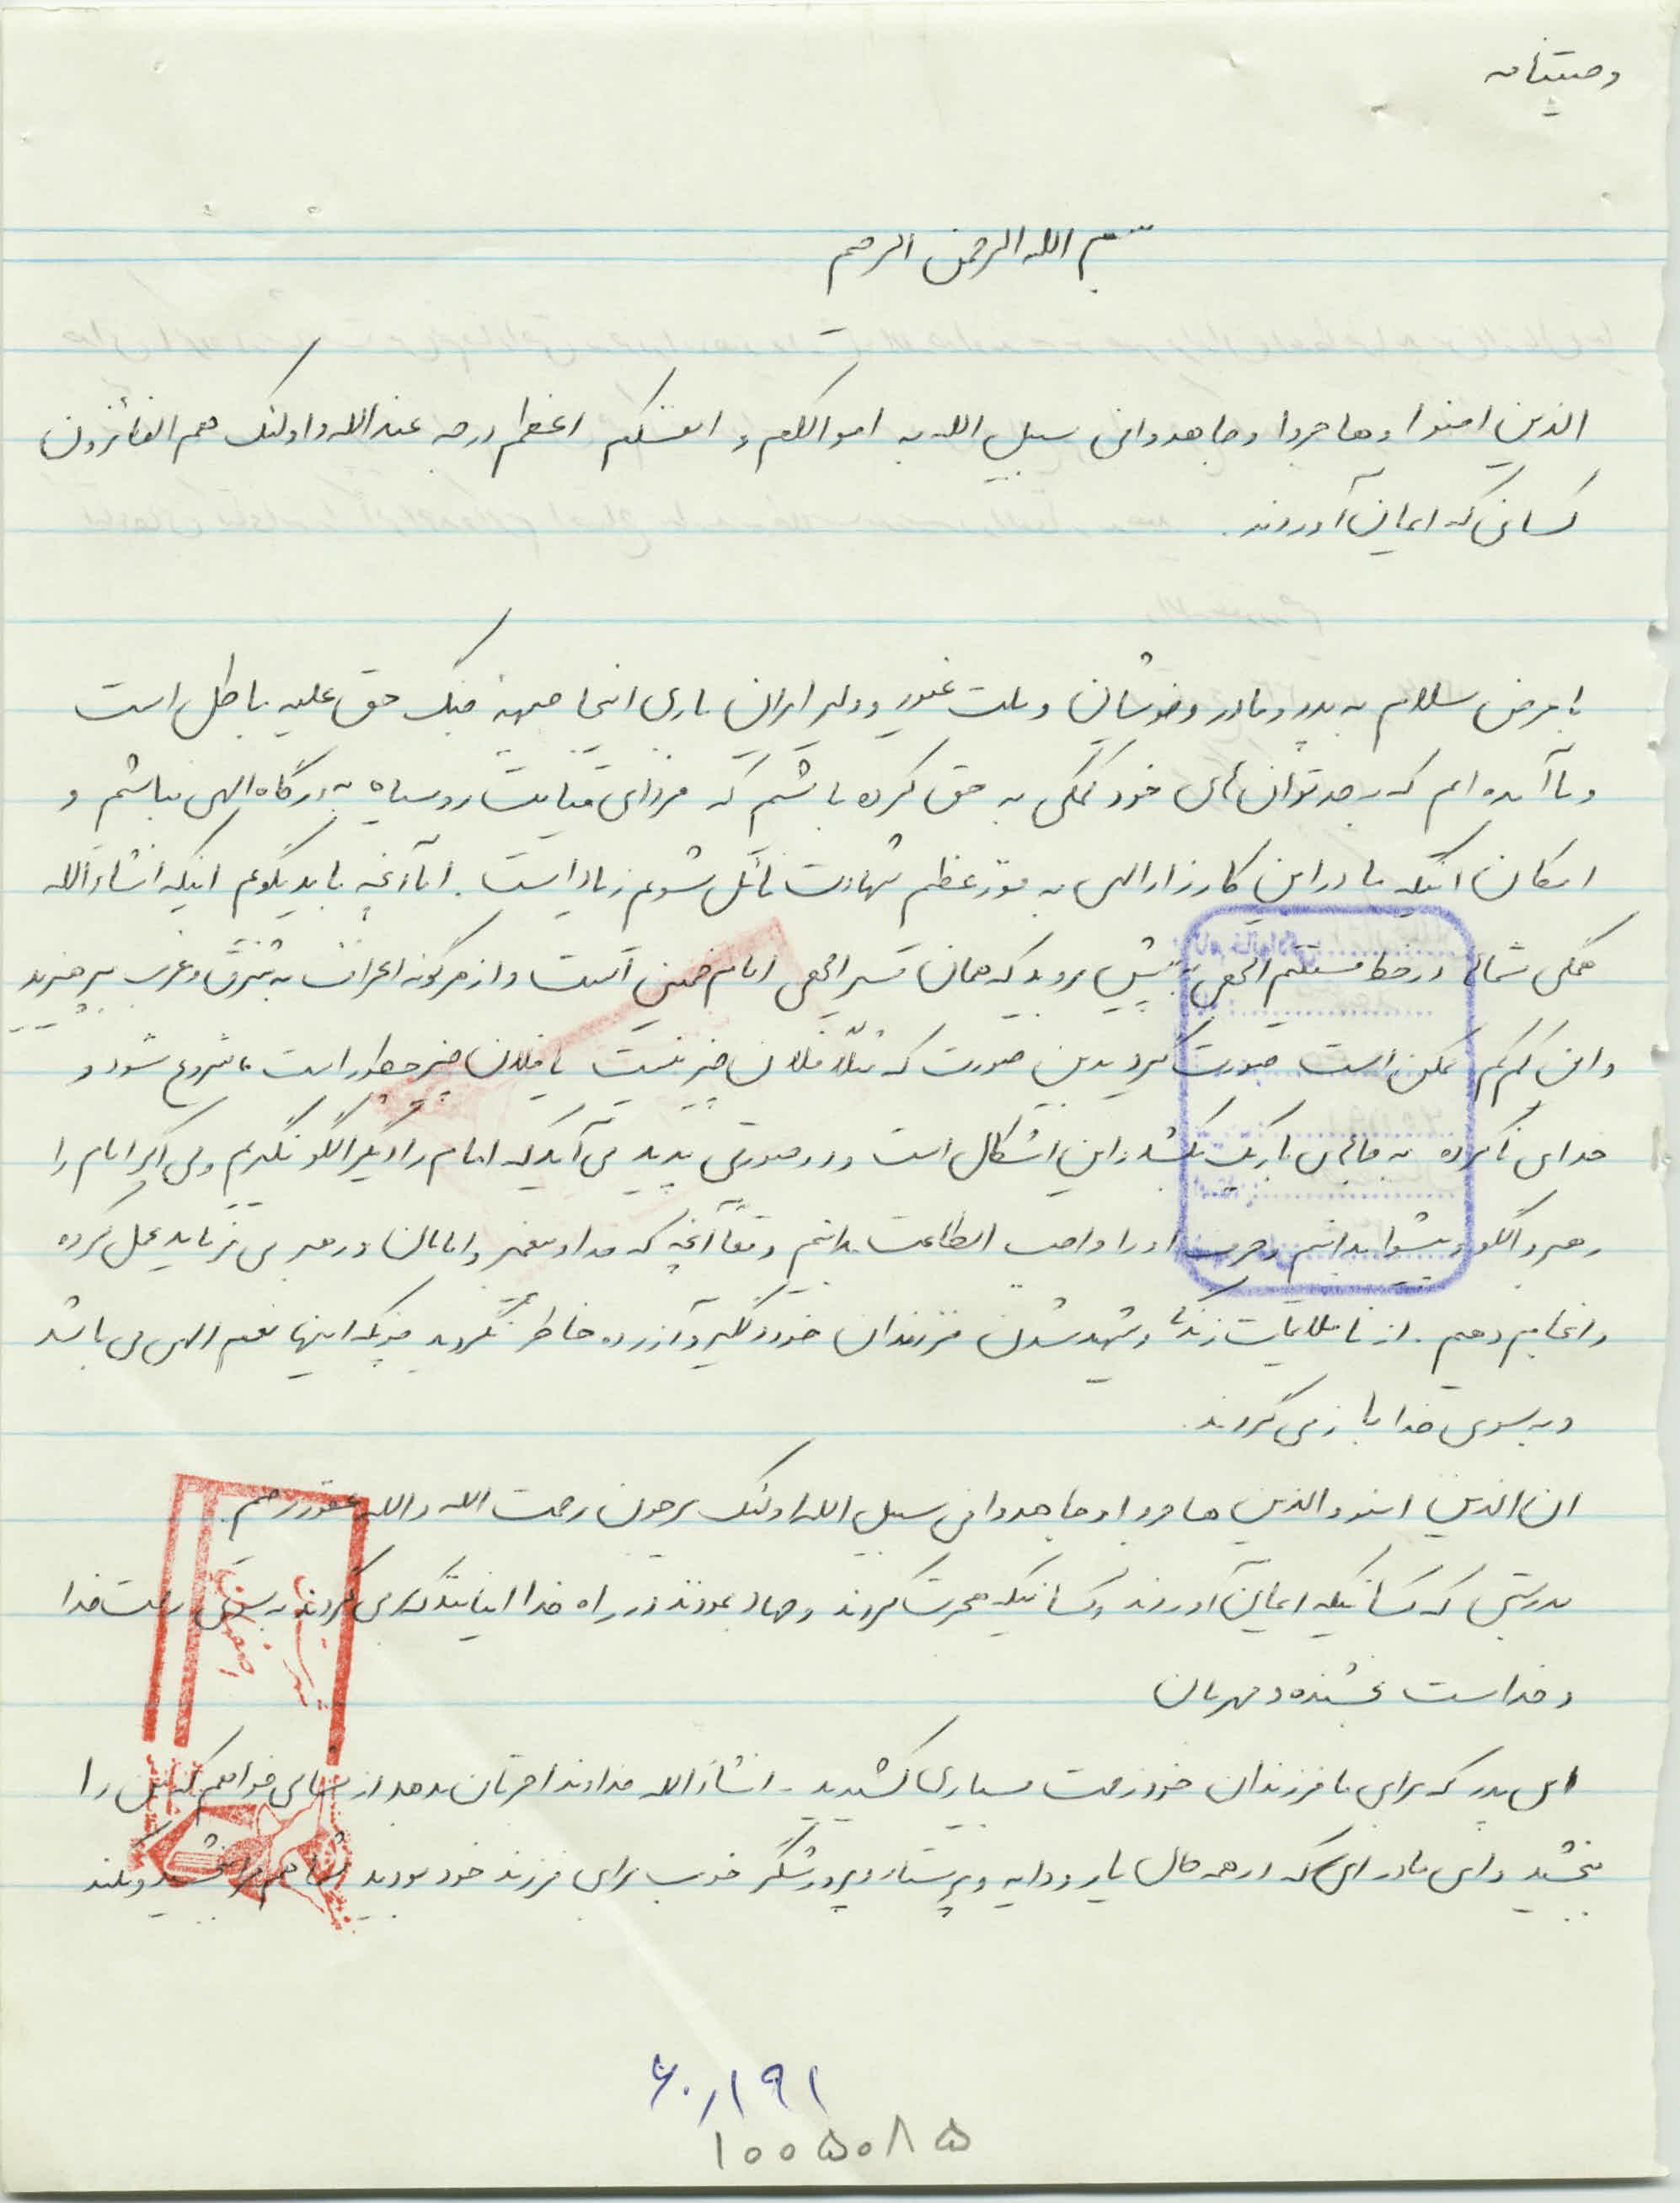 وصیتنامه
بسم الله الرحمن الرحیم
الذین امنوا وهاجروا وجاهدوا فی سبیل الله به اموالکم و انفسکم اعظم درجه عندالله و اولئک هم الفائزون
کسانی که ایمان آوردند.
با عرض سلام به پدر و مادر و خویشان و ملت غیور و دلیر ایران باری اینجا جبهه جنگ حق علیه باطل است
و ما آمده ایم که به حد توان های خود کمکی به حق کرده باشیم که فردای قیامت روسیاه به درگاه الهی نباشیم و
امکان اینکه ما در این کارزار الهی به فوز عظیم شهادت نائل شویم زیاد است. اما آنچه باید بگویم اینکه انشاءالله
همگی شما در خط مستقیم الهی به پیش بروید که همان مسیر الهی امام خمینی است و از هرگونه انحراف به شرق و غرب بپرهیزید
و این کم کم ممکن است صورت گیرد بدین صورت که مثلا فلان چیز نیست یا فلان چیز چطور است، شروع شود و
خدای ناکرده به جاهای باریک بکشد، این اشکال است و در صورتی پدید می آید که امام را دیگر الگو نگیریم ولی اگر امام را
رهبر و الگو و پیشوا بدانیم و حرف او را واجب الطاعت بدانیم و تمام آنچه که خدا و پیغمبر و امامان و رهبر می فرماید عمل کرده
و انجام دهیم. از ناملایمات زندگی و شهید شدن فرزندان خود دلگیر و آزرده خاطر نگردید چونکه اینها نعیم الهی می باشد
و به سوی خدا باز می گردند.
ان الذین امنو والذین هاجروا وجاهدوا فی سبیل الله اولئک یرجون رحمت الله والله غفور رحیم
بدرستی که کسانیکه ایمان آوردند و کسانیکه هجرت کردند و جهاد نمودند در راه خدا اینانند که می گردند به سوی رحمت خدا
و خداست بخشنده و مهربان
ای پدر که برای ما فرزندان خود زحمت بسیاری کشیدید - انشاءالله خداوند اجرتان بدهد از شما می خواهم که من را
ببخشید و ای مادر ای که در همه حال یار و دایه و پرستار و پرورشگر خوب برای فرزند خود بودید شما هم مرا ببخشید و بکنند
۶۰٫۱۹۱
۱۰۰۵۰۸۵